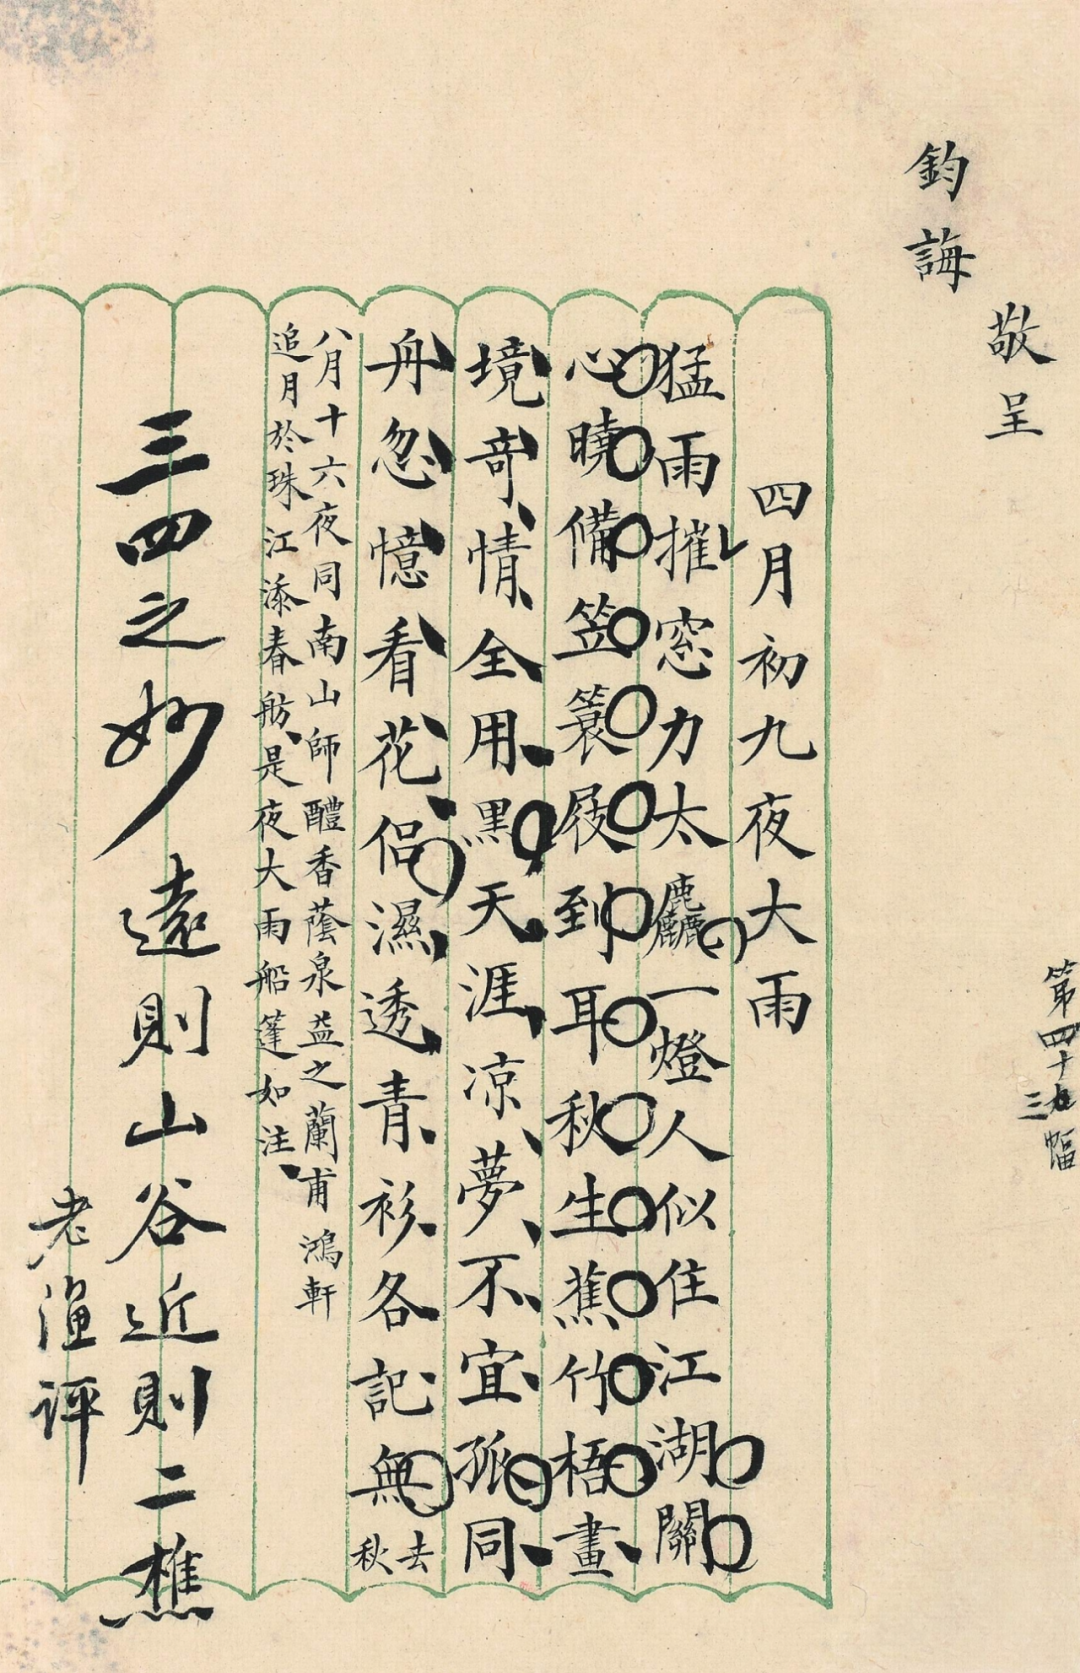 敬呈
鈞誨
四月初九夜大雨
猛雨摧窓力太麤一燈人似住江湖關
心曉備笠簑屐到耳秋生蕉竹梧畫
境奇情全用黑天涯涼夢不宜孤同
舟忽憶看花侶濕透青衫各記無去秋
八月十六夜同南山師醴香蔭泉益之蘭甫鴻軒
追月於珠江添春舫是夜大雨船篷如注
三四之妙遠則山谷近則二樵
老漁評
第四十三幅